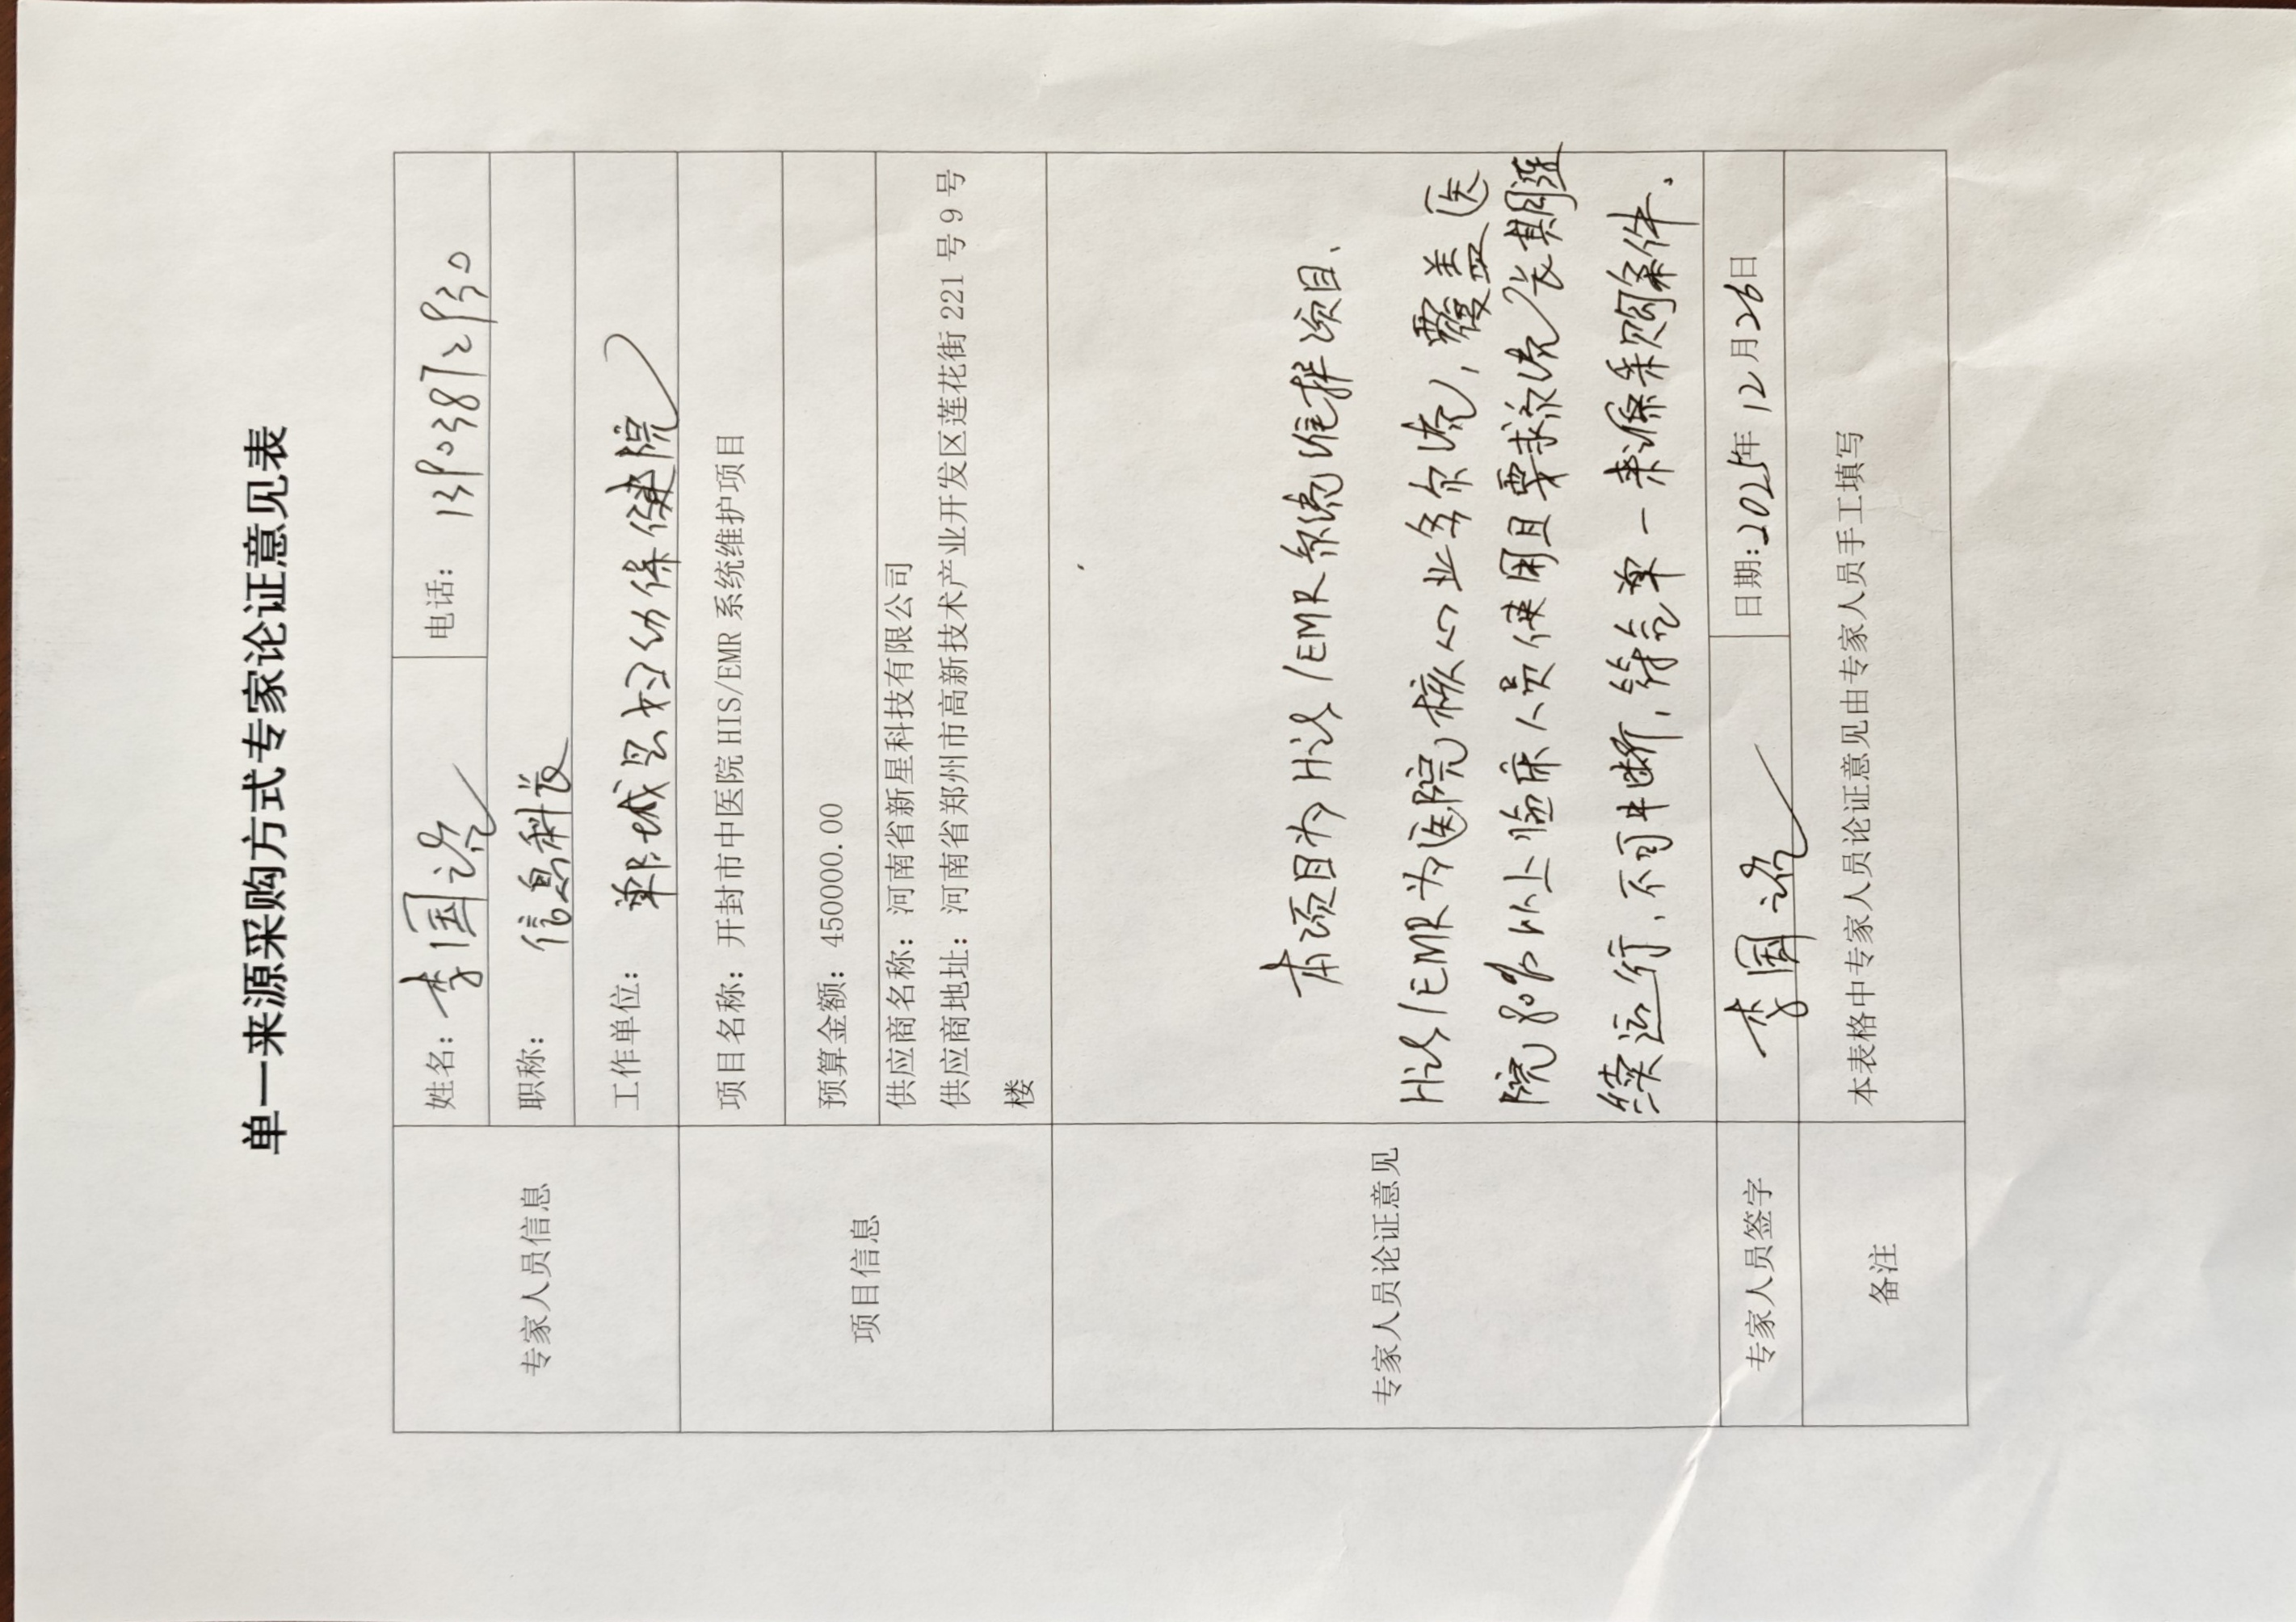 单一来源采购方式专家论证意见表
专家人员信息
姓名：李国
电话：13903872930
职称：信息科长
工作单位：郸城县妇幼保健院
项目信息
项目名称：开封市中医院 HIS/EMR 系统维护项目
预算金额：450000.00
供应商名称：河南省新星科技有限公司
供应商地址：河南省郑州市高新技术产业开发区莲花街 221 号 9 号
楼
专家人员论证意见
本项目为His/EMR系统维护项目、
His/EMR为医院核心业务系统，覆盖医
院80%以上临床人员使用且要求系统长期连
续运行，不可中断，符合单一来源采购条件.
专家人员签字
李国
日期:2025年12月26日
备注
本表格中专家人员论证意见由专家人员手工填写